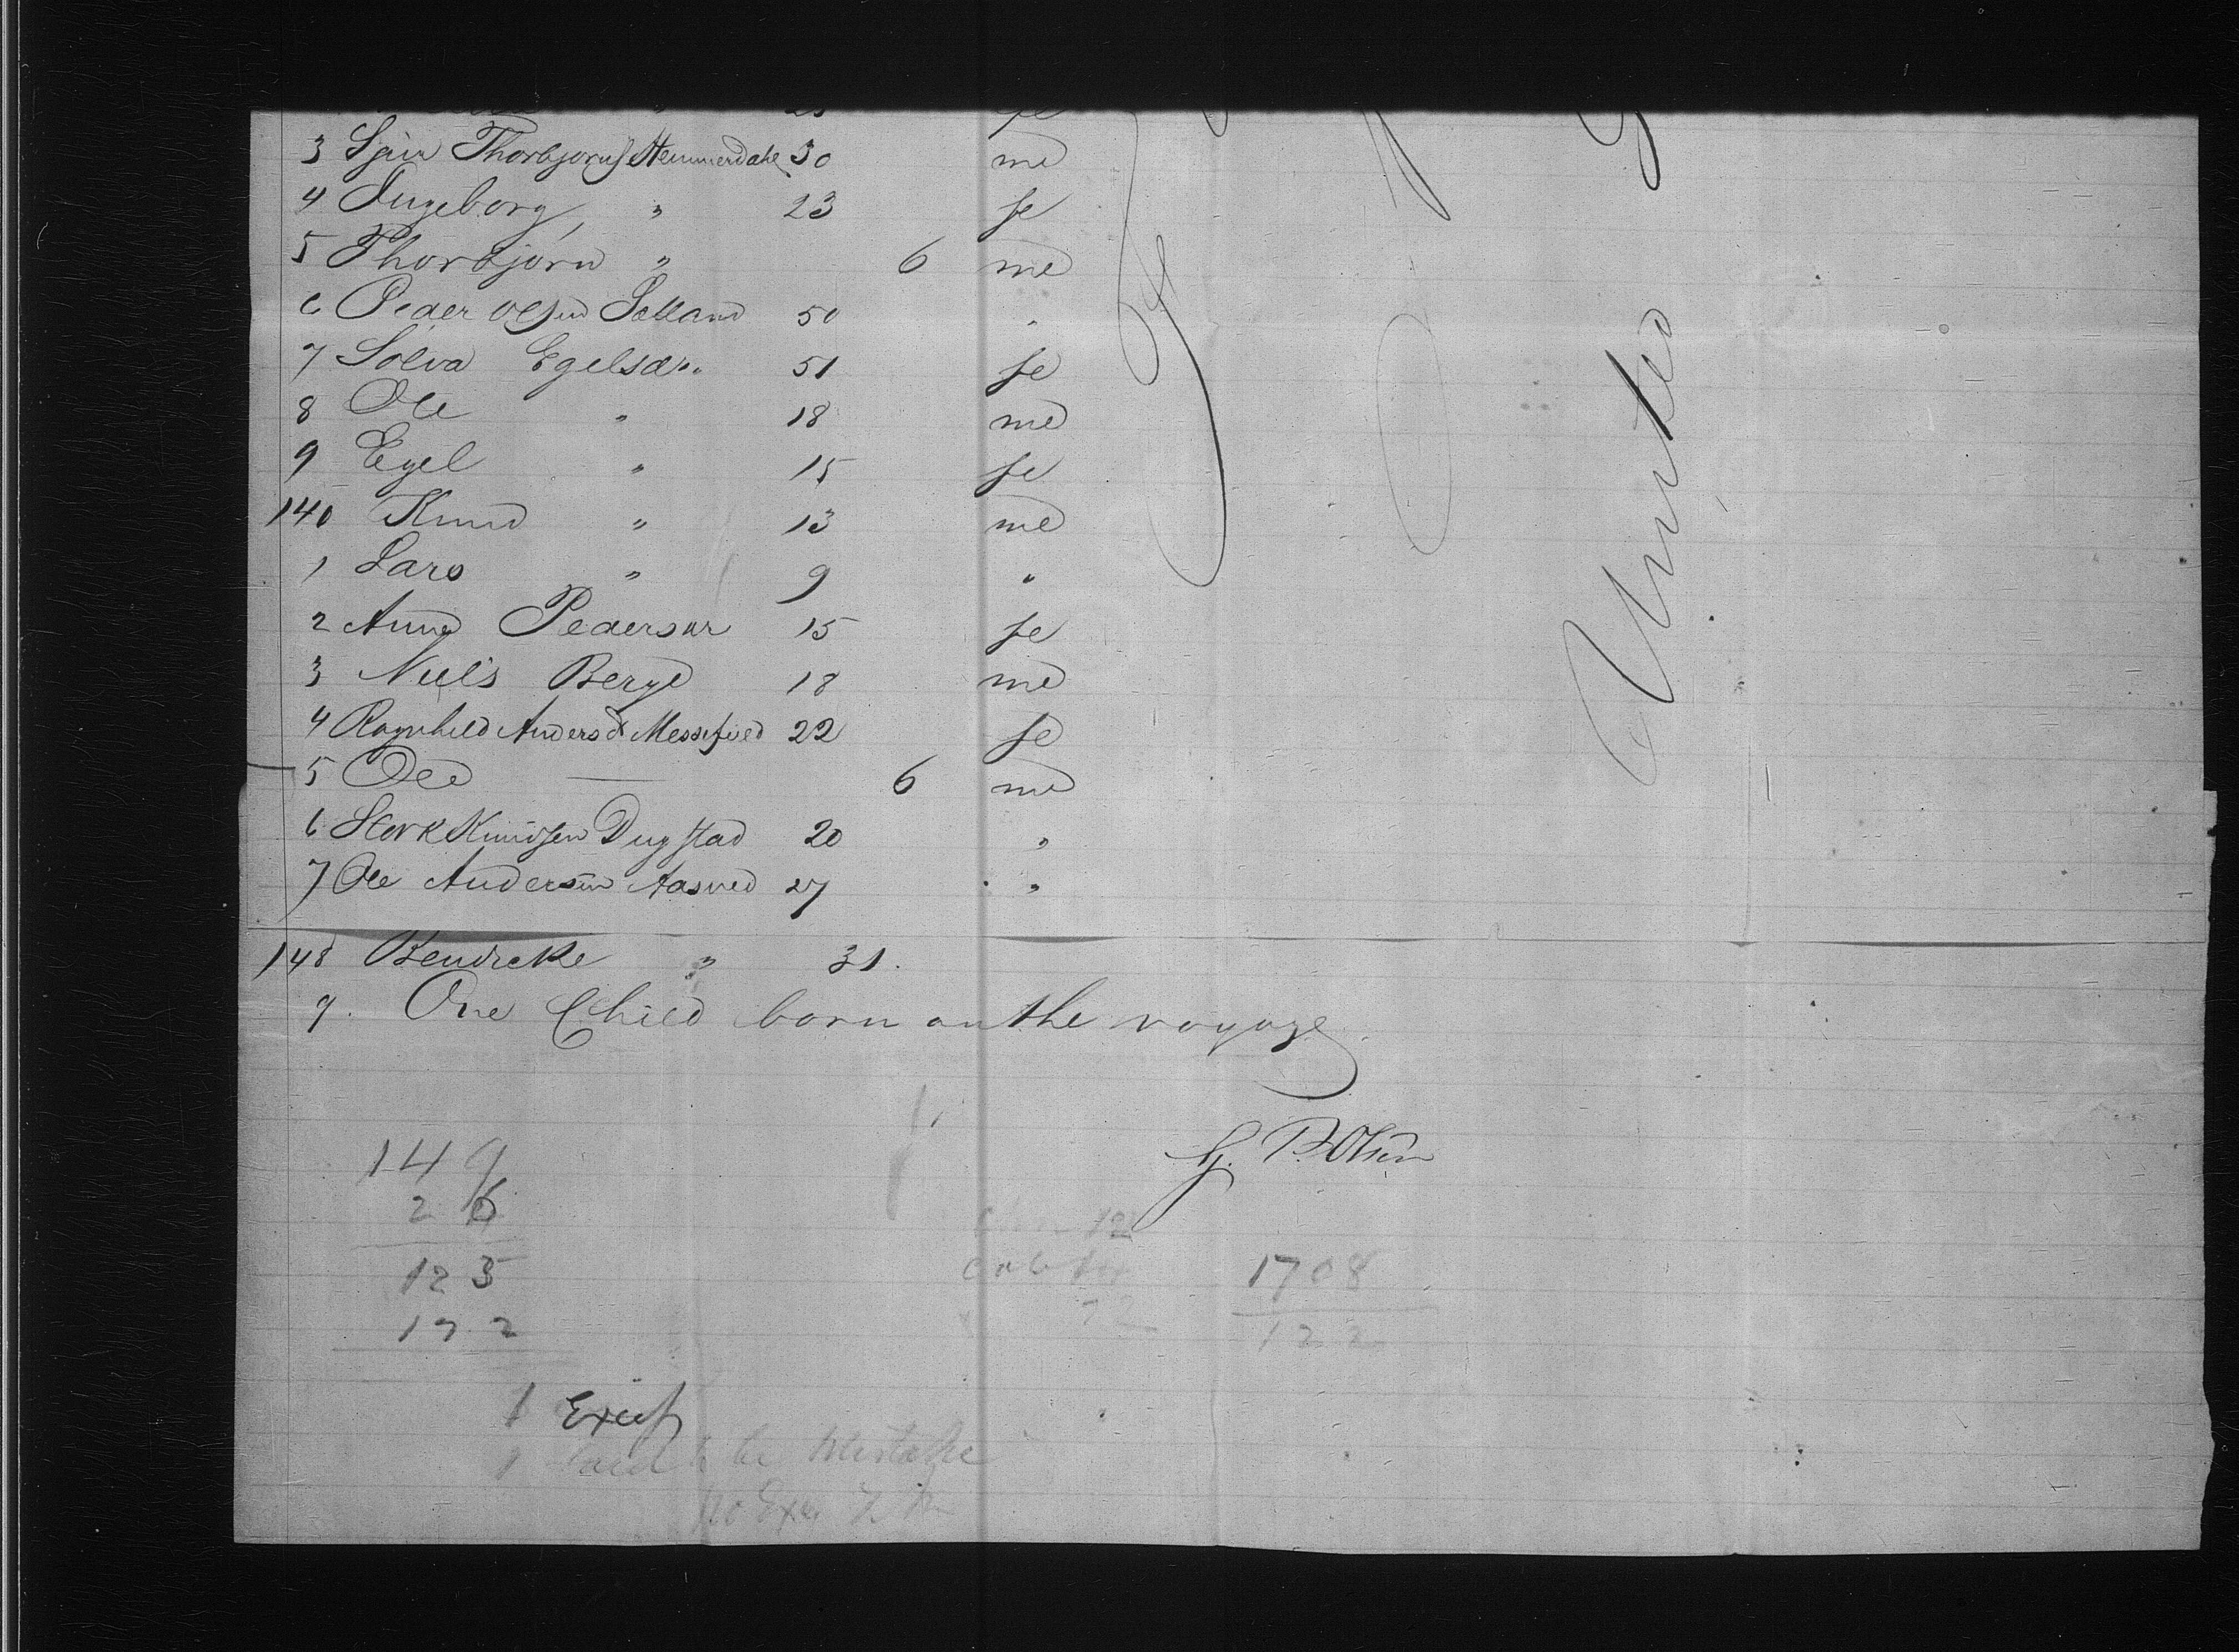 3 Thorbjorns Hemmerdahl 30 me
4 Ingeborg " 23 fe
5 Thorbjørn " 6 me
6 Peder Olsen 50 "
7 Solva Egelsdr " 51 fe
8 Ole " 18 me
9 Egel " 15 fe
140 Knud " 13 me
1 Lars " 9 "
2 Anne Pedersdr 15 fe
3 Niels Berge 18 me
4 Ragnhild Andersd 22 fe
5 Ole — 6 me
6 Knudsen Dugstad 20 "
7 Ole Andersen Aasved 27 "
148 Bendicke " 31.
9. One Child born on the voyage.
149
26
123
122
1708
122
1 Excess
1 said to be Mistake
no Excess
United